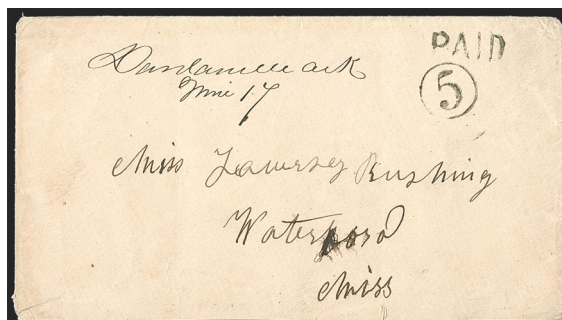 Dardanelle Ark
June 17
PAID
5
Miss Rushing
Waterford
Miss